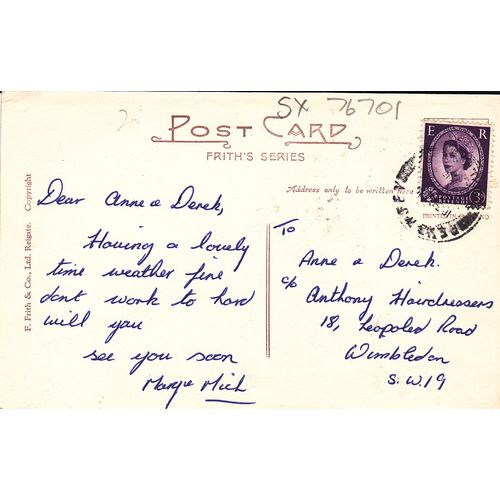 SX 76701
POST CARD
FRITH'S SERIES
Address only to be written here
E R
3D
F. Frith & Co., Ltd. Reigate. Copyright
Dear Anne & Derek,
Having a lovely
time weather fine
dont work to hard
will you
see you soon
Marge Mich
To
Anne & Derek.
c/o
Anthony Hairdressers
18, Leopoled Road
Wimbledon
S.W.19